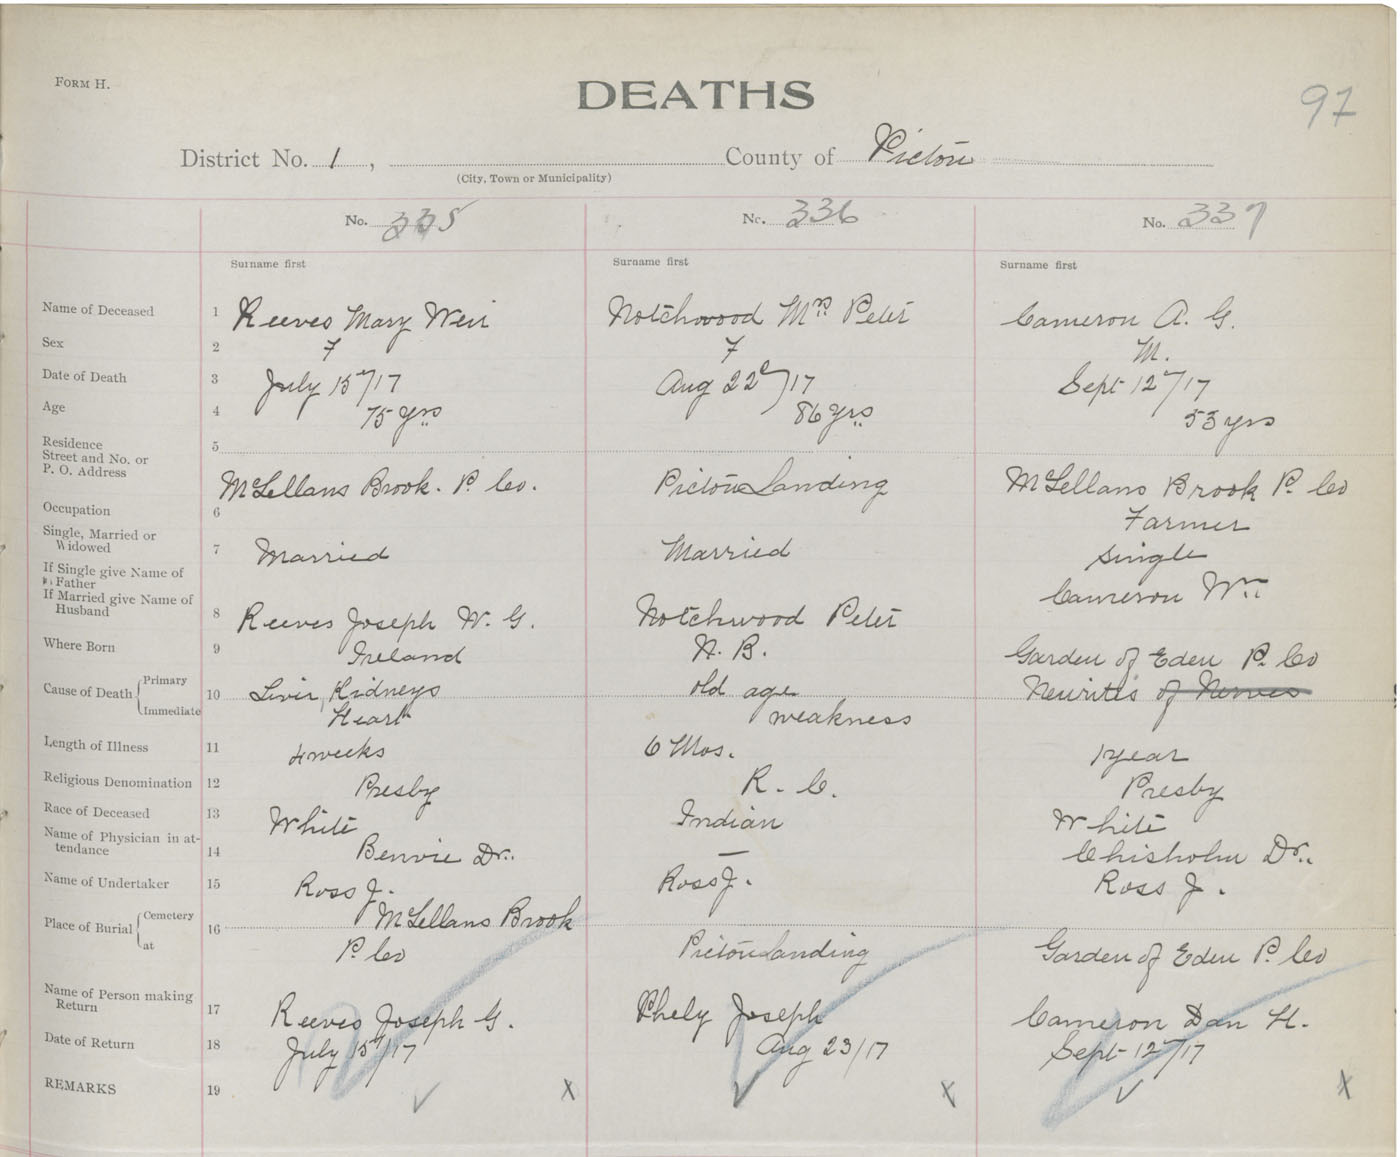 FORM H.
DEATHS
97
District No. 1, County of Pictou
(City, Town or Municipality)
No. 335 No. 336 No. 337
Surname first Surname first Surname first
Name of Deceased 1 Reeves Mary Weir Notchwood Mrs Peter Cameron A. G.
Sex 2 F F M.
Date of Death 3 July 15/17 Aug 22d/17 Sept 12/17
Age 4 75 yrs 86 yrs 53 yrs
Residence 5
Street and No. or
P. O. Address McLellans Brook. P. Co. Pictou Landing McLellans Brook P. Co
Occupation 6 Farmer
Single, Married or
Widowed 7 Married Married Single
If Single give Name of
Father Cameron Wm
If Married give Name of
Husband 8 Reeves Joseph W. G. Notchwood Peter
Where Born 9 Ireland N. B. Garden of Eden P. Co
Cause of Death Primary 10 Livir, Kidneys old age Neuritis of Nerves
Immediate Heart weakness
Length of Illness 11 4 weeks 6 Mos. 1 year
Religious Denomination 12 Presby R. C. Presby
Race of Deceased 13 White Indian White
Name of Physician in at-
tendance 14 Benvie Dr. — Chisholm Dr.
Name of Undertaker 15 Ross J. Ross J. Ross J.
Place of Burial Cemetery 16 McLellans Brook
at P. Co Pictou Landing Garden of Eden P. Co
Name of Person making
Return 17 Reeves Joseph G. Phely Joseph Cameron Dan H.
Date of Return 18 July 15/17 Aug 23/17 Sept 12/17
REMARKS 19 ✓ x ✓ x ✓ x